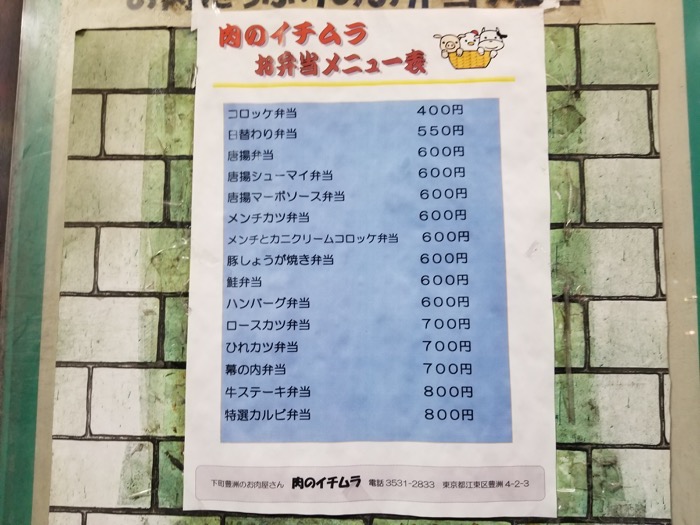 肉のイチムラ
お弁当メニュー表
コロッケ弁当 400円
日替わり弁当 550円
唐揚弁当 600円
唐揚シューマイ弁当 600円
唐揚マーボソース弁当 600円
メンチカツ弁当 600円
メンチとカニクリームコロッケ弁当 600円
豚しょうが焼き弁当 600円
鮭弁当 600円
ハンバーグ弁当 600円
ロースカツ弁当 700円
ひれカツ弁当 700円
幕の内弁当 700円
牛ステーキ弁当 800円
特選カルビ弁当 800円
下町豊洲のお肉屋さん 肉のイチムラ 電話 3531-2833 東京都江東区豊洲 4-2-3